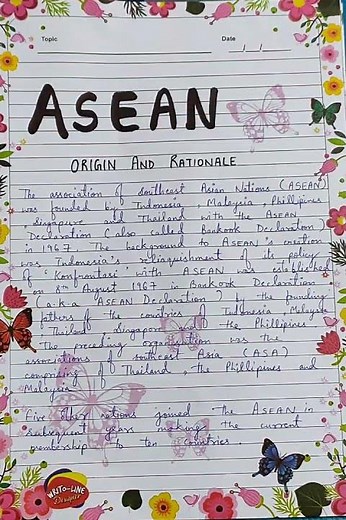 Topic
Date
ASEAN
ORIGIN AND RATIONALE
The association of southeast Asian Nations (ASEAN)
was founded by Indonesia, Malaysia, Phillipines
, Singapore and Thailand with the ASEAN
Declaration (also called Bankook Declaration)
in 1967. The background to ASEAN's creation
was Indonesia's relinquishment of its policy
of 'Konfrontasi' with ASEAN was established
on 8th August 1967 in Bankook Declaration
(a.k.a ASEAN Declaration) by the founding
fathers of the countries of Indonesia, Malaysia
, Thailand, Singapore and the Phillipines.
The preceding organisation was the
associations of southeast Asia (ASA)
comprising of Thailand, the Phillipines and
Malaysia.
Five other nations joined the ASEAN in
subsequent years making the current
membership to ten countries.
WRITO-LINE
Designer